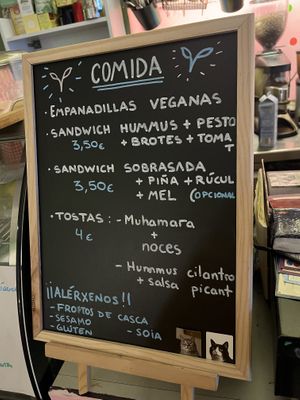 COMIDA
· EMPANADILLAS VEGANAS
· SANDWICH HUMMUS + PESTO
3,50€ + BROTES + TOMAT
· SANDWICH SOBRASADA
3,50€ + PIÑA + RÚCUL
+ MEL (OPCIONAL
· TOSTAS: - Muhamara
4€ +
noces
- Hummus cilantro
+ salsa picant
¡¡ALÉRXENOS!!
- FROITOS DE CASCA
- SÉSAMO
- GLUTEN - SOIA